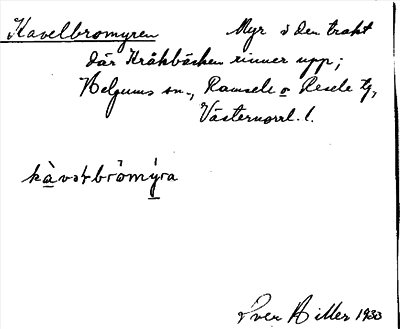 Kavelbromyren Myr i den trakt
där Kråkbäcken rinner upp;
Helgums sn., Ramsele o Resele tg,
Västernorrl. l.
kàvəłbrömýra
Sven Hiller 1933